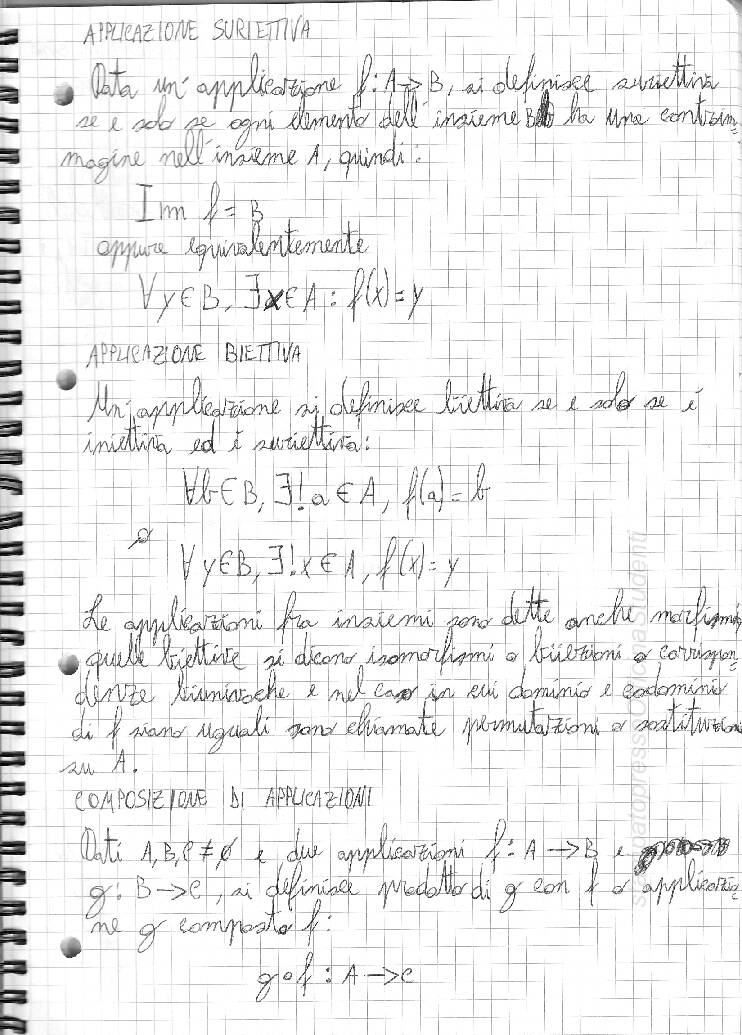 APPLICAZIONE SURIETTIVA
Data un' applicazione f: A → B, si definisce suriettiva
se e solo se ogni elemento dell' insieme B ha una controim=
magine nell' insieme A, quindi:
Im f = B
oppure equivalentemente
∀y∈B, ∃x∈A : f(x) = y
APPLICAZIONE BIETTIVA
Un' applicazione si definisce biettiva se e solo se è
iniettiva ed è suriettiva:
∀b∈B, ∃! a∈A, f(a) = b
o
∀y∈B, ∃! x∈A, f(x) = y
Le applicazioni fra insiemi sono dette anche morfismi,
quelle biettive si dicono isomorfismi o biiezioni o corrispon=
denze biunivoche e nel caso in cui dominio e codominio
di f siano uguali sono chiamate permutazioni o sostituzioni
su A.
COMPOSIZIONE DI APPLICAZIONI
Dati A, B, C ≠ ∅ e due applicazioni f: A → B e
g: B → C, si definisce prodotto di g con f o applicazio
ne g composto f:
g∘f : A → C